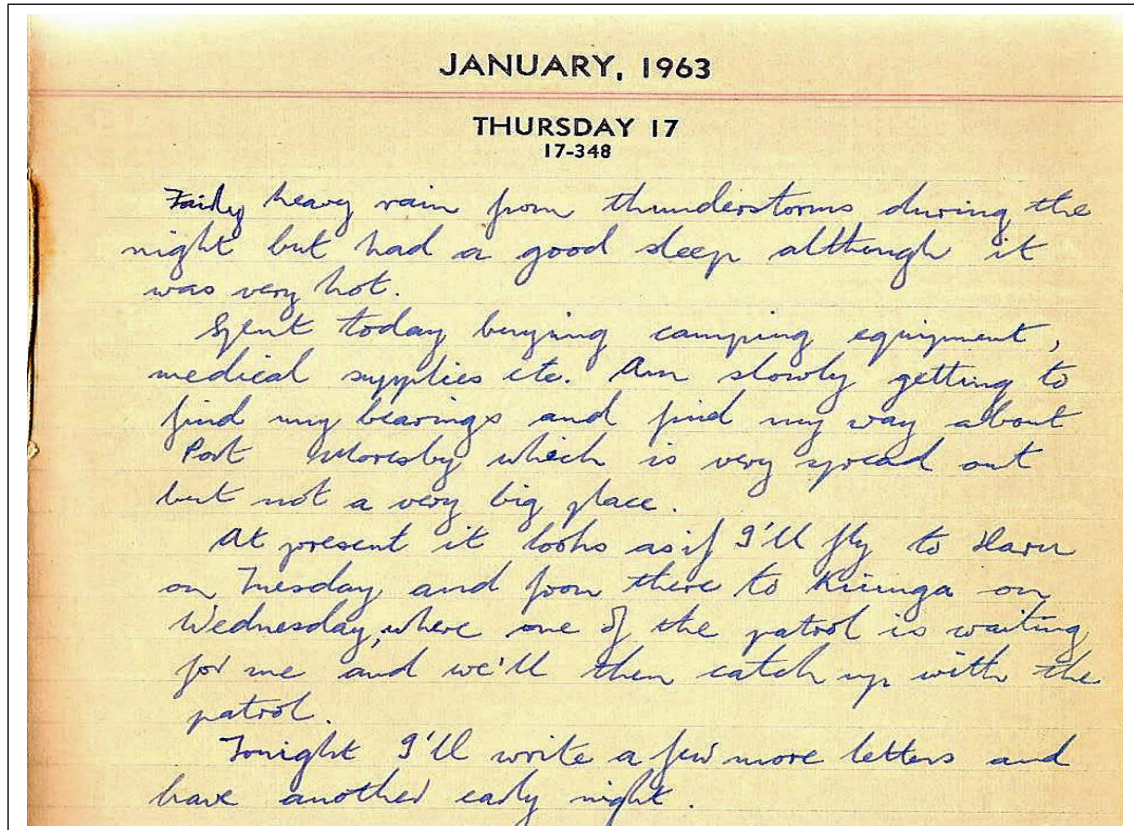 JANUARY, 1963
THURSDAY 17
17-348
Fairly heavy rain from thunderstorms during the
night but had a good sleep although it
was very hot.
Spent today buying camping equipment,
medical supplies etc. Am slowly getting to
find my bearings and find my way about
Port Moresby which is very spread out
but not a very big place.
At present it looks as if I'll fly to Daru
on Tuesday and from there to Kiunga on
Wednesday, where one of the patrol is waiting
for me and we'll then catch up with the
patrol.
Tonight I'll write a few more letters and
have another early night.